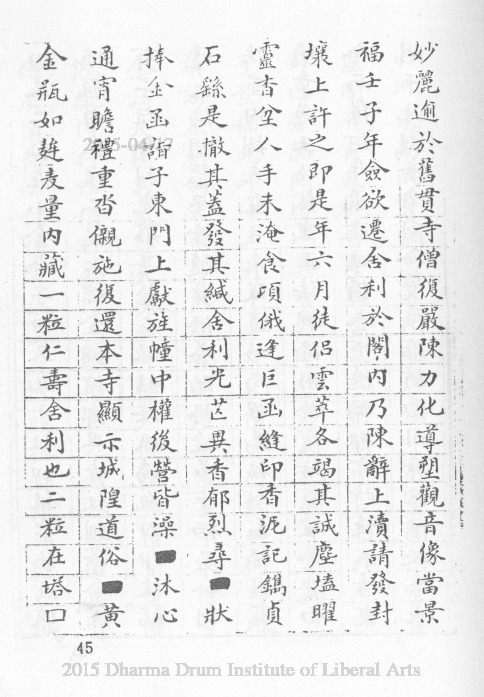 妙麗逾於舊貫寺僧復嚴陳力化導塑觀音像當景
福壬子年僉欲遷舍利於閣內乃陳辭上瀆請發封
壤上許之即是年六月徒侶雲萃各竭其誠塵壒曜
靈杳坌人手未淹食項俄逢巨函縫印香泥記鐫貞
石繇是撤其蓋發其緘舍利光芒異香郁烈尋■狀
捧金函詣子東門上獻旌幢中權後營皆澡■沐心
通宵瞻禮重沓儭施復還本寺顯示城隍道俗■黃
金瓶如麰麦量內藏一粒仁壽舍利也二粒在塔口
45
2015 Dharma Drum Institute of Liberal Arts